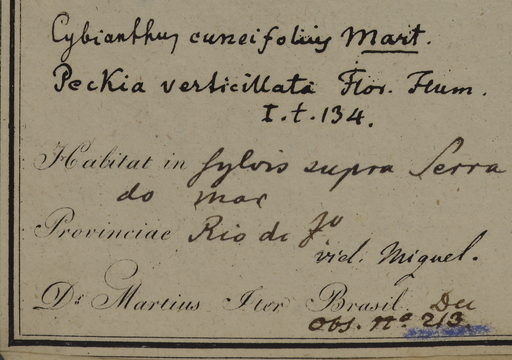 Cybianthus cuneifolius Mart.
Peckia verticillata Flor. Flum.
I. t. 134.
Habitat in Sylvis supra Serra
do mar
Provinciae Rio de Jo
vid. Miquel.
Dr. Martius Iter Brasil. Dec
Obs. No. 213.